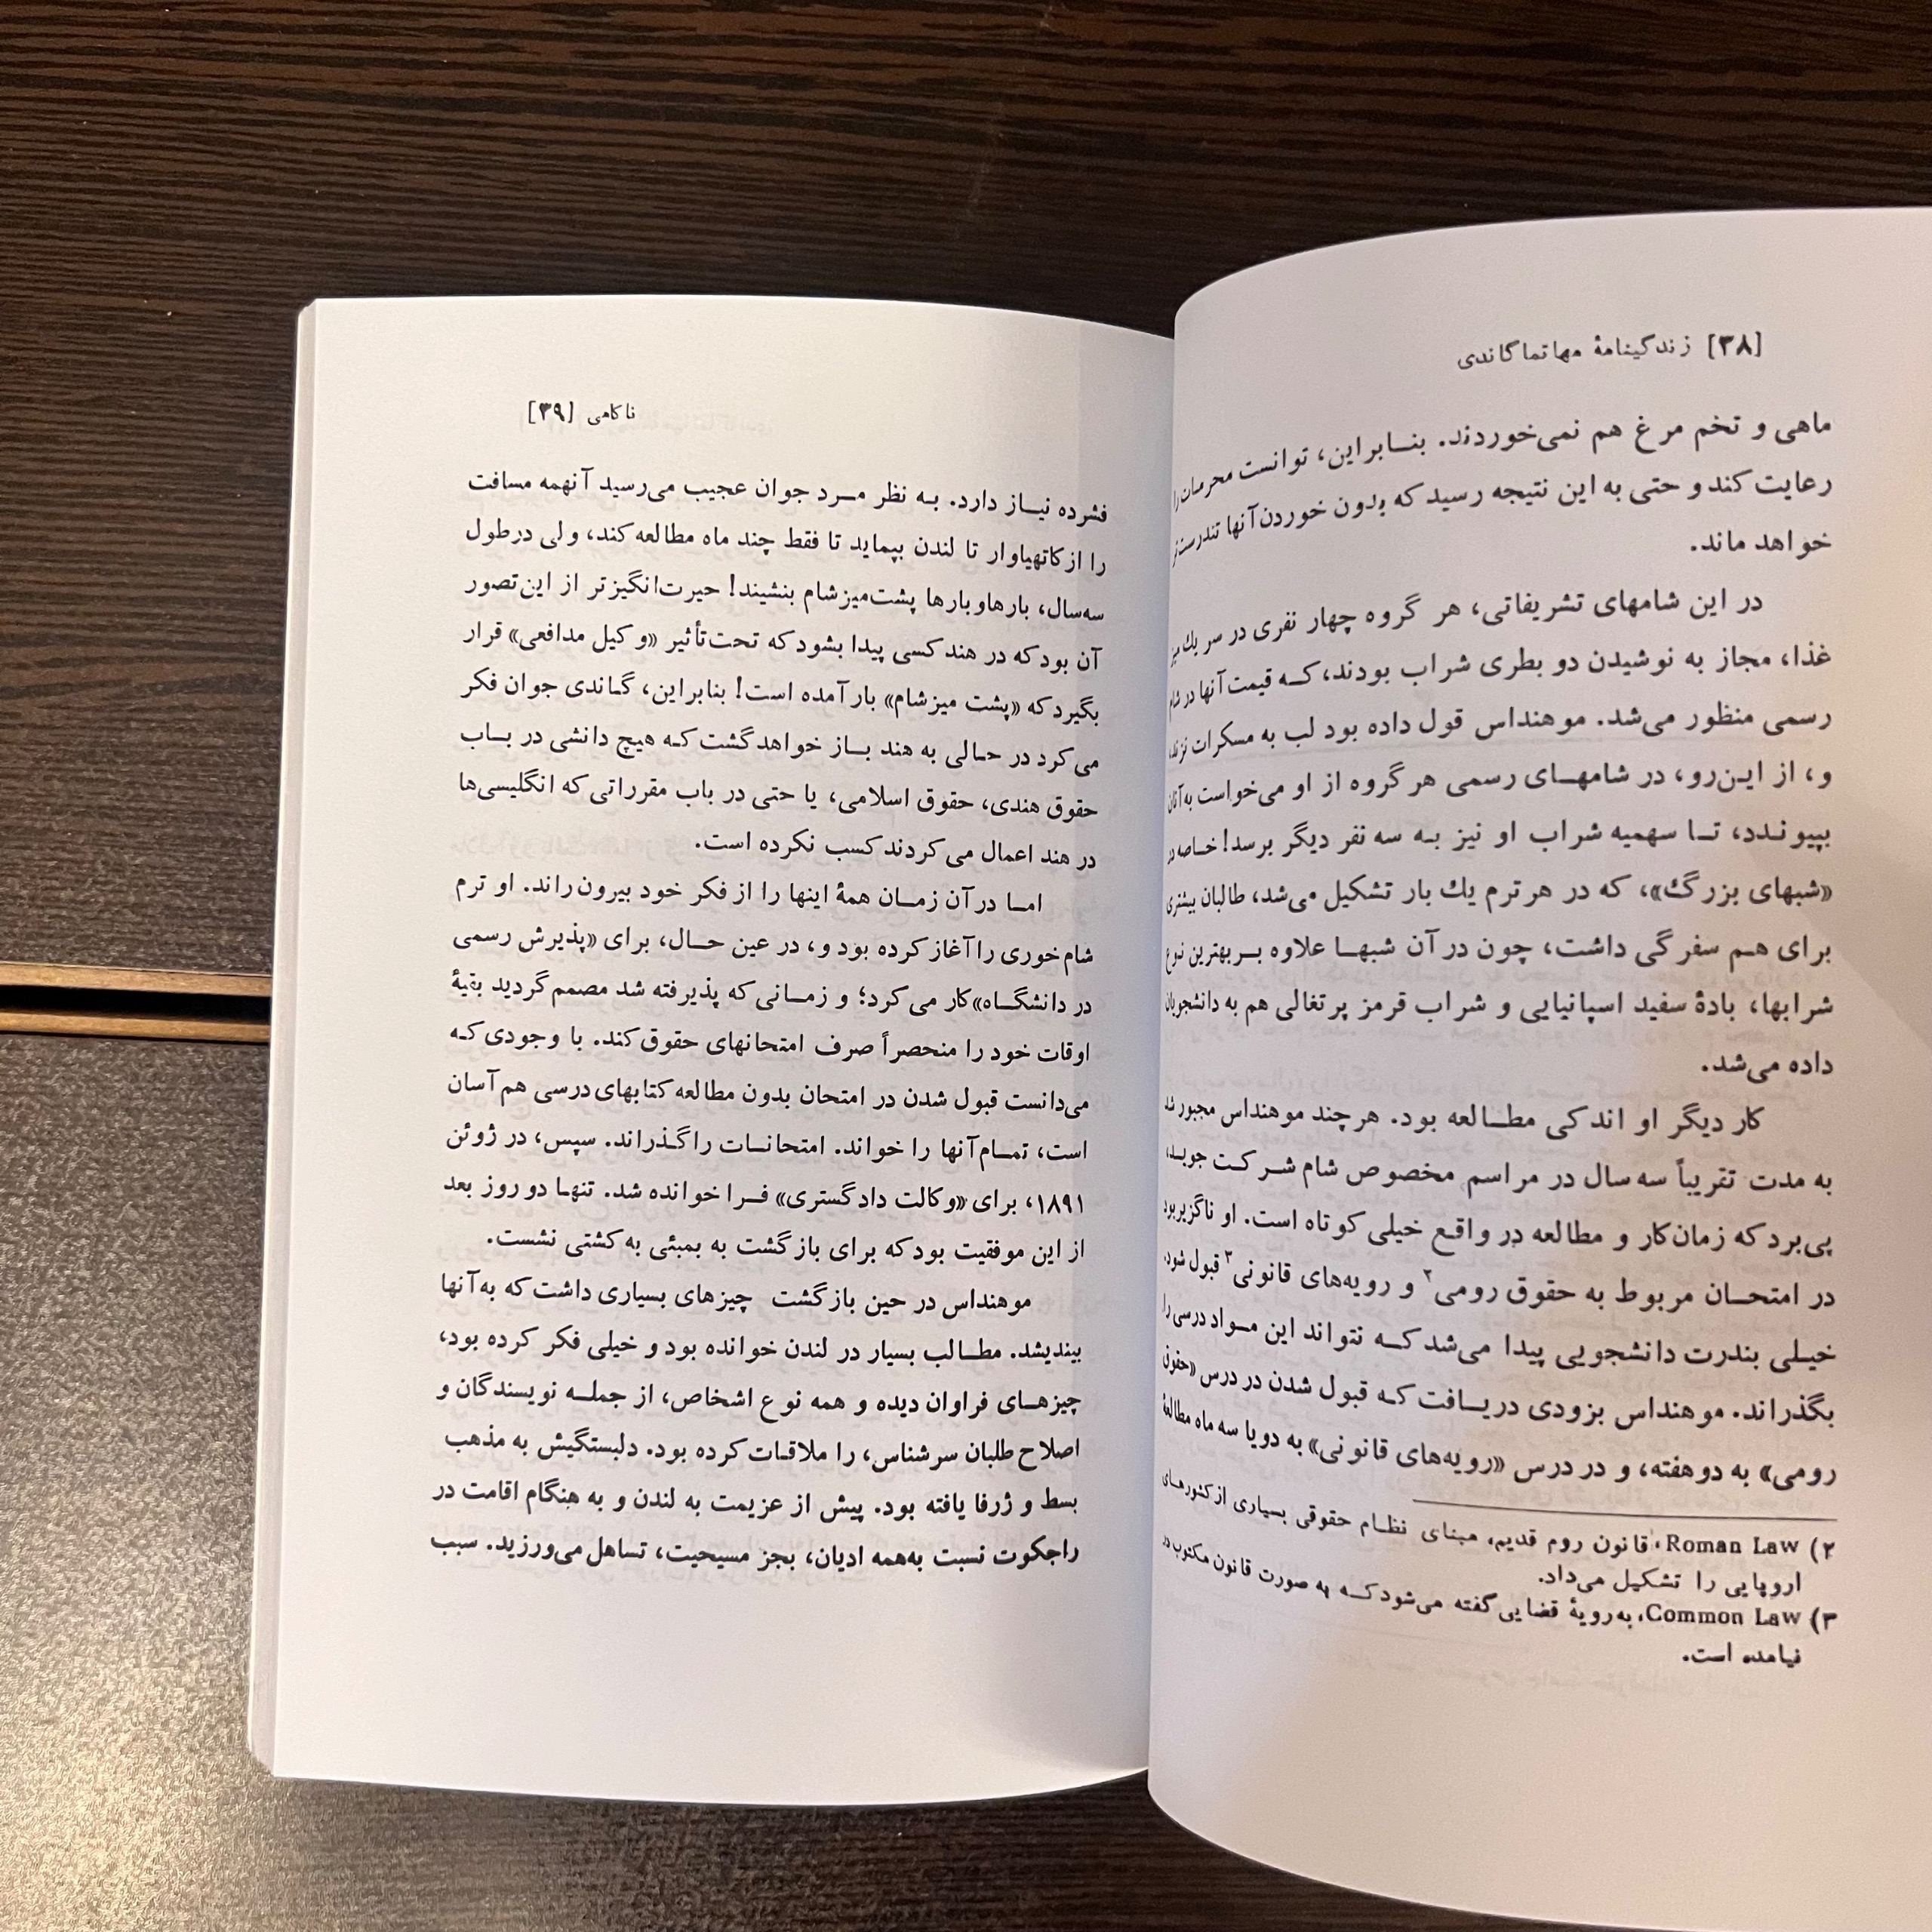 [۳۸] زندگینامهٔ مهاتما گاندی
ماهی و تخم مرغ هم نمی‌خوردند. بنابراین، توانست محرمات را
رعایت کند و حتی به این نتیجه رسید که بدون خوردن آنها تندرست‌تر
خواهد ماند.
در این شامهای تشریفاتی، هر گروه چهار نفری در سر یك میز
غذا، مجاز به نوشیدن دو بطری شراب بودند، که قیمت آنها در شام
رسمی منظور می‌شد. موهنداس قول داده بود لب به مسکرات نزند،
و، از این‌رو، در شامهای رسمی هر گروه از او می‌خواست به آنان
بپیوندد، تا سهمیه شراب او نیز به سه نفر دیگر برسد! خاصه در
«شبهای بزرگ»، که در هر ترم یك بار تشکیل می‌شد، طالبان بیشتری
برای هم سفرگی داشت، چون در آن شبها علاوه بر بهترین نوع
شرابها، بادهٔ سفید اسپانیایی و شراب قرمز پرتغالی هم به دانشجویان
داده می‌شد.
کار دیگر او اندکی مطالعه بود. هرچند موهنداس مجبور شد
به مدت تقریباً سه سال در مراسم مخصوص شام شرکت جوید،
پی‌برد که زمان کار و مطالعه در واقع خیلی کوتاه است. او ناگزیر بود
در امتحان مربوط به حقوق رومی۲ و رویه‌های قانونی۳ قبول شود.
خیلی بندرت دانشجویی پیدا می‌شد که نتواند این مواد درسی را
بگذراند. موهنداس بزودی دریافت که قبول شدن در درس «حقوق
رومی» به دو هفته، و در درس «رویه‌های قانونی» به دو یا سه ماه مطالعهٔ
۲) Roman Law، قانون روم قدیم، مبنای نظام حقوقی بسیاری از کشورهای
اروپایی را تشکیل می‌داد.
۳) Common Law، به رویهٔ قضایی گفته می‌شود که به صورت قانون مکتوب در
نیامده است.
ناکامی [۳۹]
فشرده نیاز دارد. به نظر مرد جوان عجیب می‌رسید آنهمه مسافت
را از کاتهیاوار تا لندن بپماید تا فقط چند ماه مطالعه کند، ولی در طول
سه‌سال، بارها و بارها پشت میز شام بنشیند! حیرت‌انگیزتر از این تصور
آن بود که در هند کسی پیدا بشود که تحت تأثیر «وکیل مدافعی» قرار
بگیرد که «پشت میز شام» بار آمده است! بنابراین، گاندی جوان فکر
می‌کرد در حالی به هند باز خواهد گشت که هیچ دانشی در باب
حقوق هندی، حقوق اسلامی، یا حتی در باب مقرراتی که انگلیسی‌ها
در هند اعمال می‌کردند کسب نکرده است.
اما در آن زمان همهٔ اینها را از فکر خود بیرون راند. او ترم
شام‌خوری را آغاز کرده بود و، در عین حال، برای «پذیرش رسمی
در دانشگاه» کار می‌کرد؛ و زمانی که پذیرفته شد مصمم گردید بقیهٔ
اوقات خود را منحصراً صرف امتحانهای حقوق کند. با وجودی که
می‌دانست قبول شدن در امتحان بدون مطالعه کتابهای درسی هم آسان
است، تمام آنها را خواند. امتحانات را گذراند. سپس، در ژوئن
۱۸۹۱، برای «وکالت دادگستری» فرا خوانده شد. تنها دو روز بعد
از این موفقیت بود که برای بازگشت به بمبئی به کشتی نشست.
موهنداس در حین بازگشت چیزهای بسیاری داشت که به آنها
بیندیشد. مطالب بسیار در لندن خوانده بود و خیلی فکر کرده بود،
چیزهای فراوان دیده و همه نوع اشخاص، از جمله نویسندگان و
اصلاح طلبان سرشناس، را ملاقات کرده بود. دلبستگیش به مذهب
بسط و ژرفا یافته بود. پیش از عزیمت به لندن و به هنگام اقامت در
راجکوت نسبت به‌همه ادیان، بجز مسیحیت، تساهل می‌ورزید. سبب